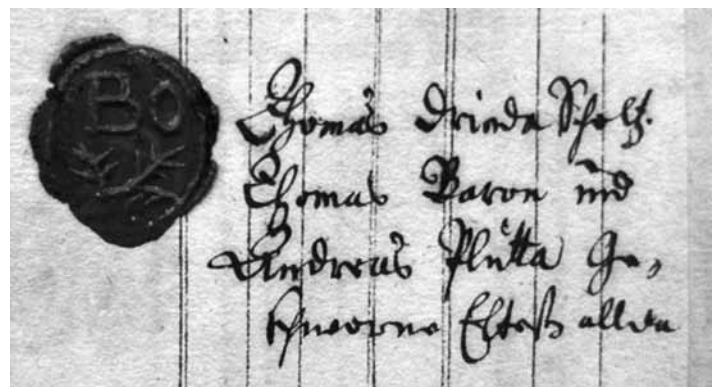 BO
Thomas Drieda Scholtz.
Thomas Baron und
Andreas Plutta Ge-
schworne Eltest allda